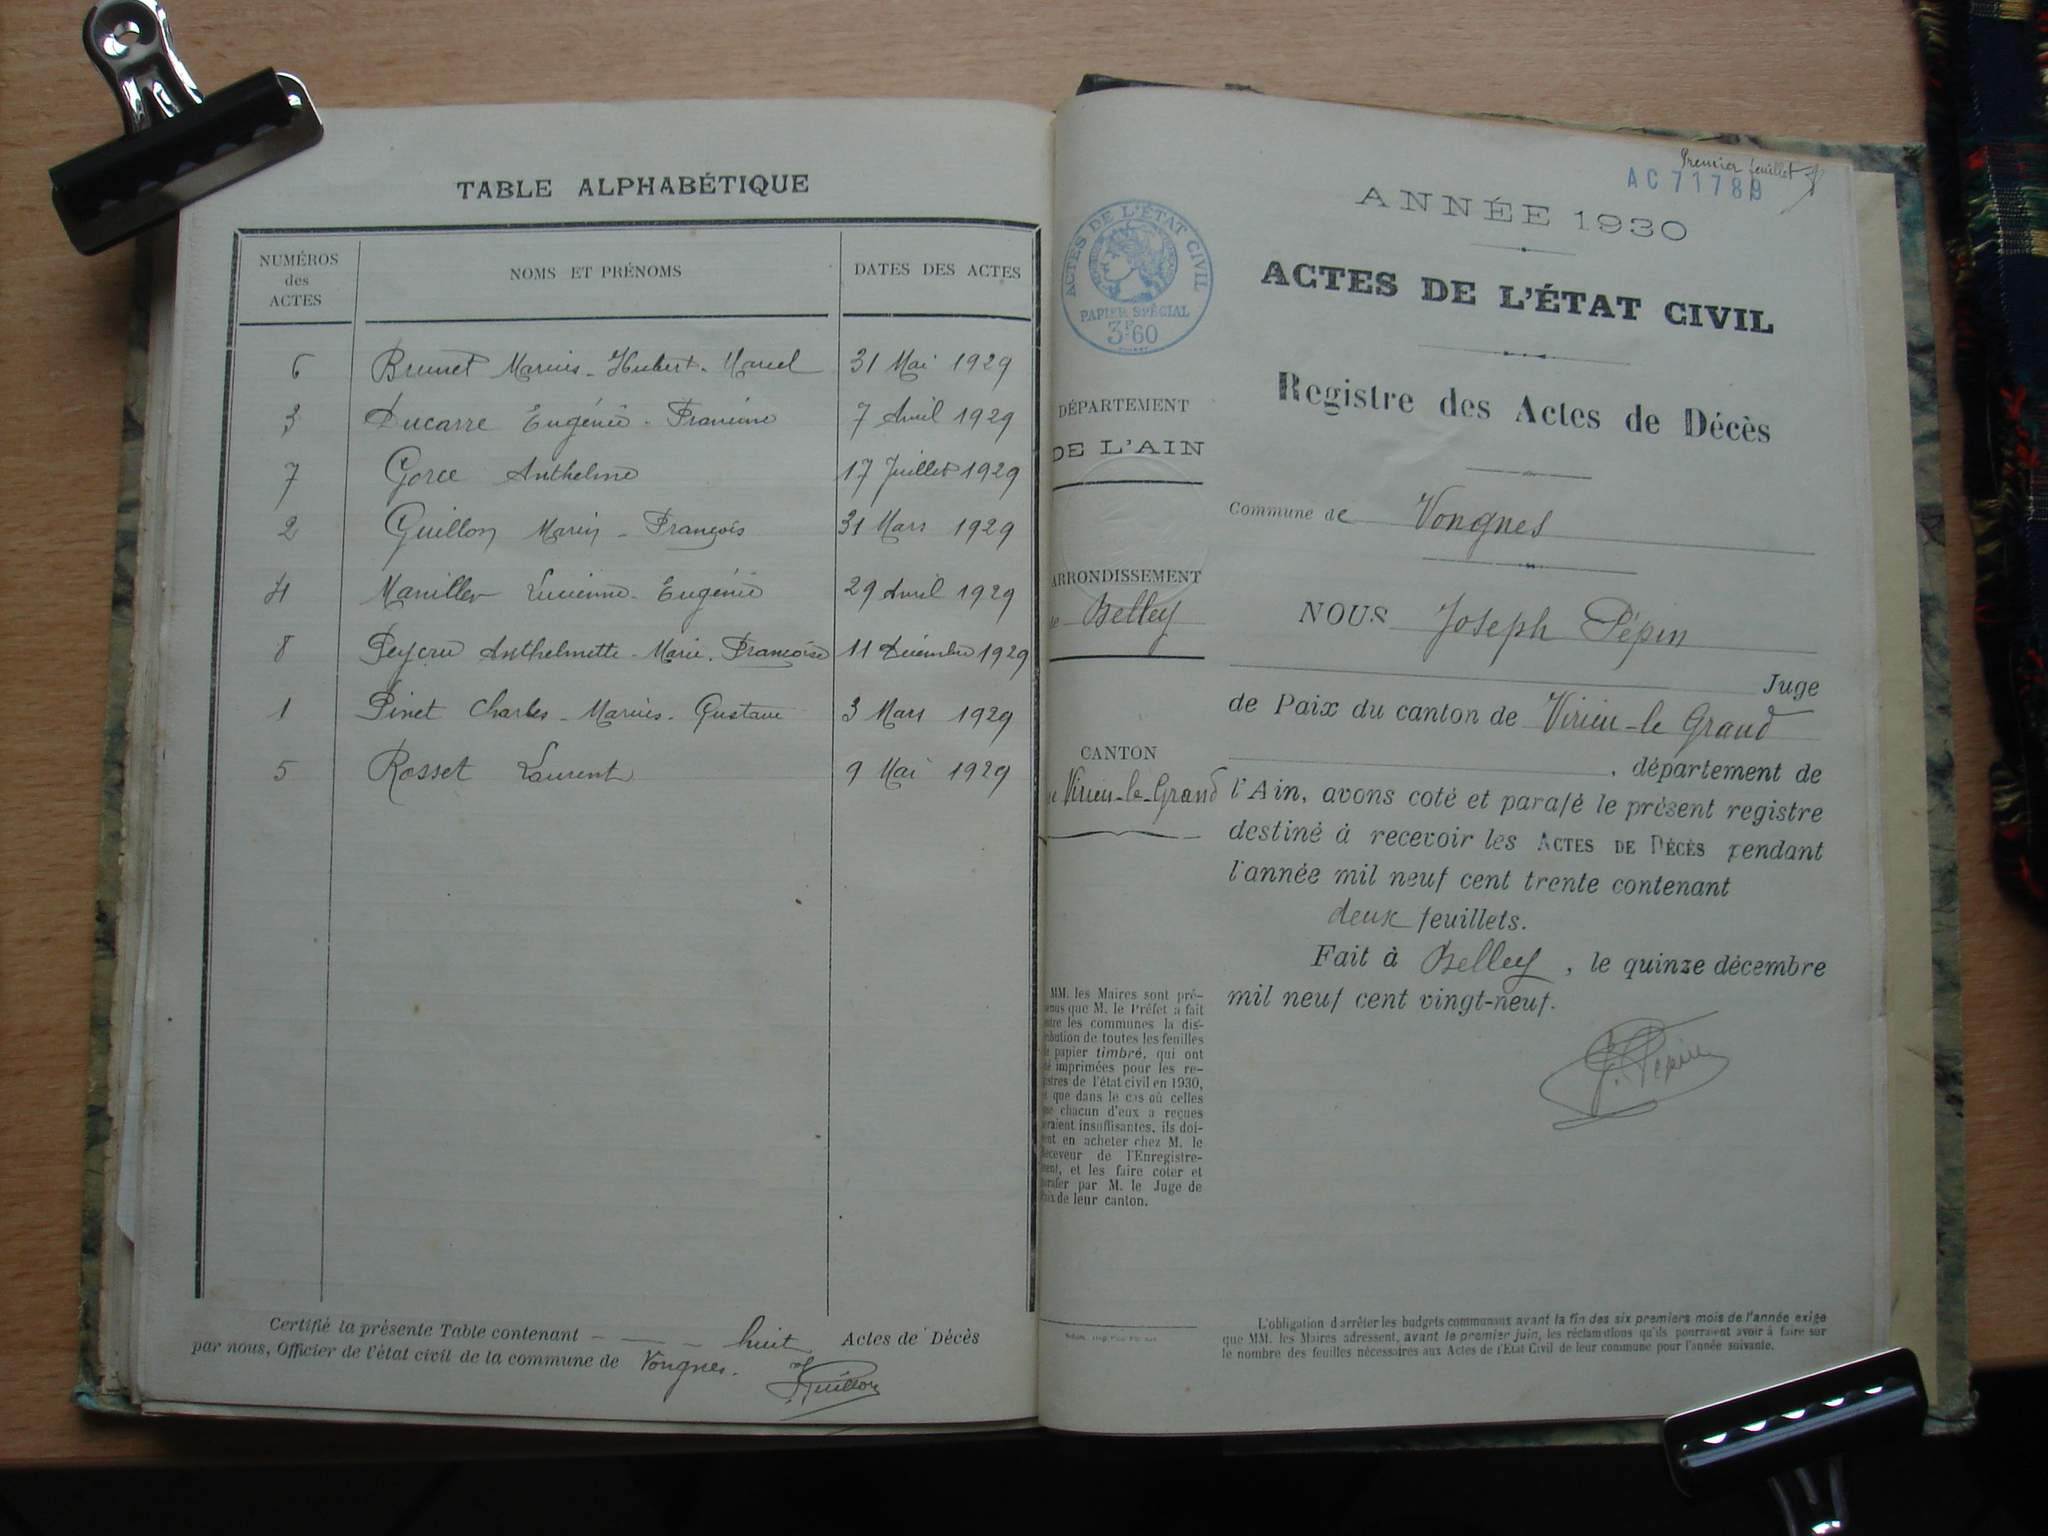 TABLE ALPHABÉTIQUE
NUMÉROS des ACTES NOMS ET PRÉNOMS DATES DES ACTES
6 Brunet Marius - Hubert - Marcel 31 Mai 1929
3 Ducarre Eugénie - Francine 7 Avril 1929
7 Gorce Anthelme 17 Juillet 1929
2 Guillon Marin - François 31 Mars 1929
4 Lucienne - Eugénie 29 Avril 1929
8 Peycru Anthelmette - Marie - Françoise 11 Décembre 1929
1 Pinet Charles - Marius - Gustave 3 Mars 1929
5 Rosset Laurent 9 Mai 1929
Certifié la présente Table contenant - — — huit Actes de Décès
par nous, Officier de l'état civil de la commune de Vongnes.
Guillon
Premier feuillet
AC 71789
ANNÉE 1930
ACTES DE L'ÉTAT CIVIL
PAPIER SPÉCIAL
3F60
ACTES DE L'ÉTAT CIVIL
Registre des Actes de Décès
DÉPARTEMENT
DE L'AIN
ARRONDISSEMENT
de Belley
CANTON
de Virieu-le-Grand
MM. les Maires sont pré-
venus que M. le Préfet a fait
entre les communes la dis-
tribution de toutes les feuilles
de papier timbré, qui ont
été imprimées pour les re-
gistres de l'état civil en 1930,
et que dans le cas où celles
que chacun d'eux a reçues
seraient insuffisantes, ils doi-
vent en acheter chez M. le
Receveur de l'Enregistre-
ment, et les faire coter et
parafer par M. le Juge de
Paix de leur canton.
Commune de Vongnes
NOUS Joseph Pépin
Juge
de Paix du canton de Virieu-le Grand
, département de
l'Ain, avons coté et parafé le présent registre
destiné à recevoir les ACTES DE DÉCÈS pendant
l'année mil neuf cent trente contenant
deux feuillets.
Fait à Belley, le quinze décembre
mil neuf cent vingt-neuf.
J. Pépin
L'obligation d'arrêter les budgets communaux avant la fin des six premiers mois de l'année exige
que MM. les Maires adressent, avant le premier juin, les réclamations qu'ils pourraient avoir à faire sur
le nombre des feuilles nécessaires aux Actes de l'Etat Civil de leur commune pour l'année suivante.